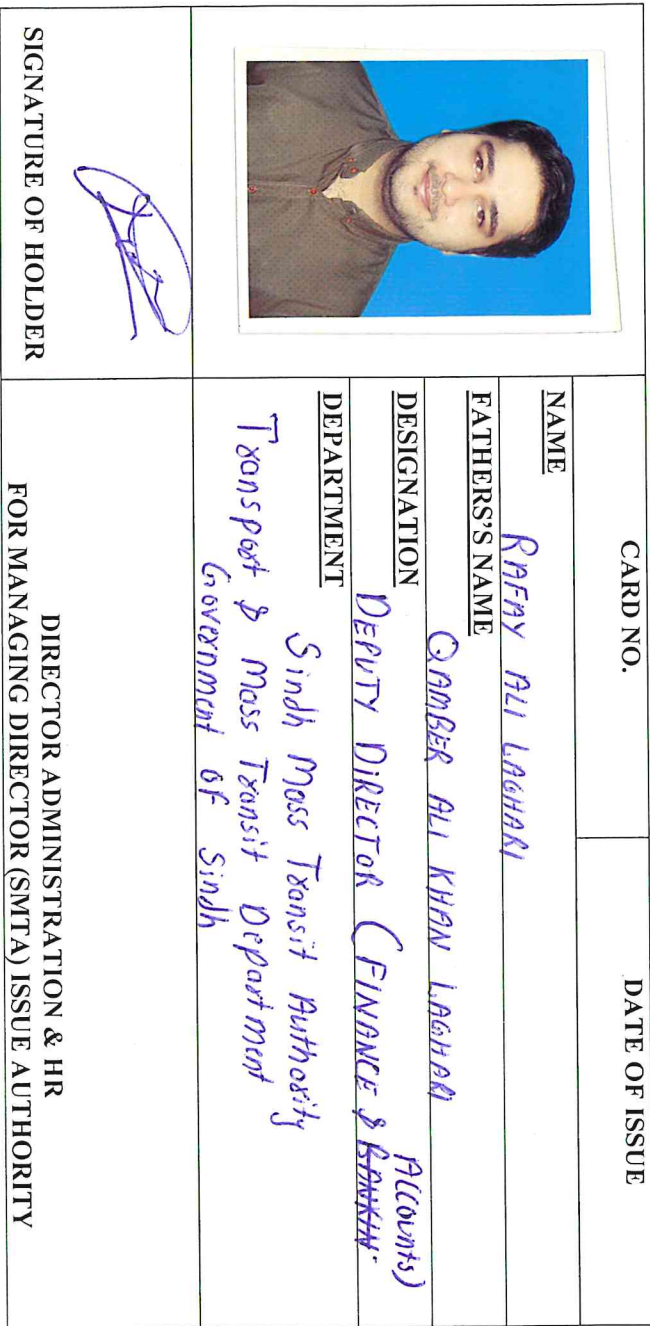 CARD NO.
DATE OF ISSUE
NAME
RAFAY ALI LAGHARI
FATHERS'S NAME
QAMBER ALI KHAN LAGHARI
DESIGNATION
DEPUTY DIRECTOR (FINANCE & BANKIN Accounts)
DEPARTMENT
Sindh Mass Transit Authority
Transport & Mass Transit Department
Government of Sindh
SIGNATURE OF HOLDER
DIRECTOR ADMINISTRATION & HR
FOR MANAGING DIRECTOR (SMTA) ISSUE AUTHORITY